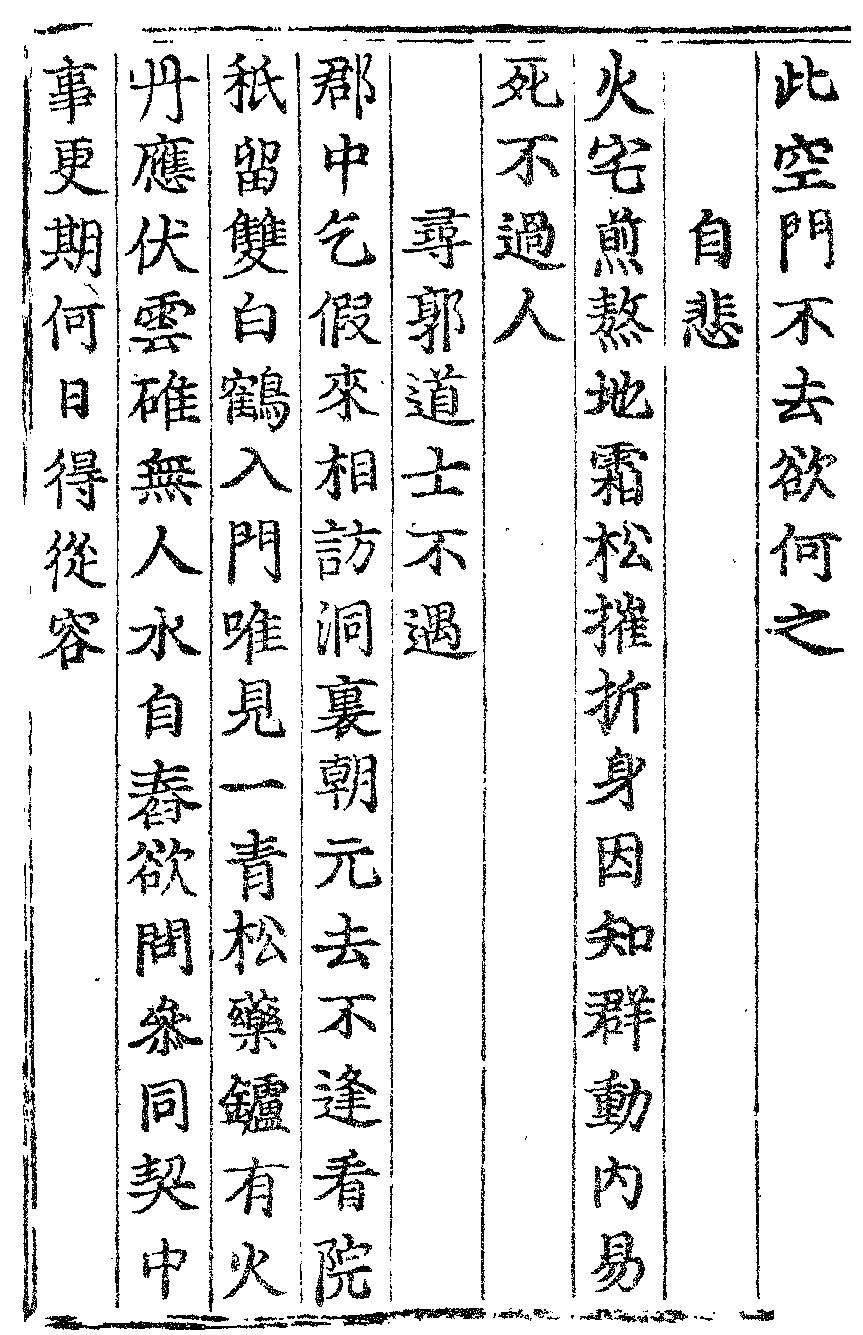 此空門不去欲何之
自悲
火宅煎熬地霜松摧折身因知群動內易
死不過人
尋郭道士不遇
郡中乞假來相訪洞裏朝元去不逢看院
秖留雙白鶴入門唯見一青松藥鑪有火
丹應伏雲碓無人水自舂欲問參同契中
事更期何日得從容